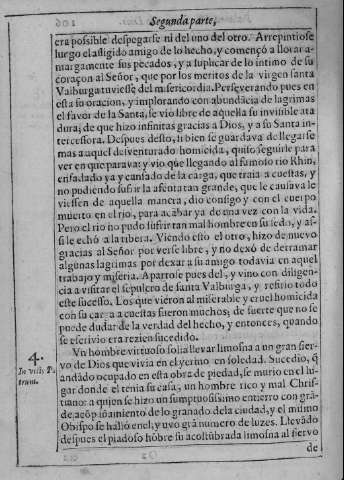 Segunda parte,
era possible despegarse ni del uno del otro. Arrepintiose
luego el afligido amigo de lo hecho, y començò a llorar a-
margamente sus pecados, y a suplicar de lo intimo de su
coraçon al Señor, que por los meritos de la virgen santa
Valburga tuviesse del misericordia. Perseverando pues en
esta su oracion, y implorando con abundãcia de lagrimas
el favor de la Santa, se vio libre de aquella su invisible ata
dura; de que hizo infinitas gracias a Dios, y a su Santa in-
tercessora. Despues desto, si bien se guardava de llegarse
mas a aquel desventurado homicida, quiso seguirle para
ver en que parava: y vio que llegando al famoso rio Rhin,
enfadado ya y cansado de la carga, que traia a cuestas, y
no pudiendo sufrir la afenta tan grande, que le causava le
viessen de aquella manera, dio consigo y con el cuerpo
muerto en el rio, para acabar ya de una vez con la vida.
Pero el rio no pudo sufrir tan mal hombre en su seno, y as-
si le echò a la ribera. Viendo esto el otro, hizo de nuevo
gracias al Señor por verse libre, y no dexò de derramar
algunas lagrimas por dexar a su amigo todavia en aquel
trabajo y miseria. Apartose pues del, y vino con diligen-
cia a visitar el sepulcro de santa Valburga, y refirio todo
este sucesso. Los que vieron al miserable y cruel homicida
con su carga a cuestas fueron muchos, de suerte que no se
puede dudar de la verdad del hecho, y entonces, quando
se escrivio era rezien sucedido.
4.
In vitis Pa
trum.
Vn hombre virtuoso solia llevar limosna a un gran sier-
vo de Dios que vivia en el yermo en soledad. Sucedio, q̃
andãdo ocupado en esta obra de piedad, se murio en el lu-
gar donde el tenia su casa, un hombre rico y mal Chris-
tiano: a quien se hizo un sumptuosissimo entierro con grã-
de acõpañamiento de lo granado de la ciudad, y el mismo
Obispo se hallò en el, y uvo grã numero de luzes. Llevado
despues el piadoso hõbre su acostũbrada limosna al siervo
de